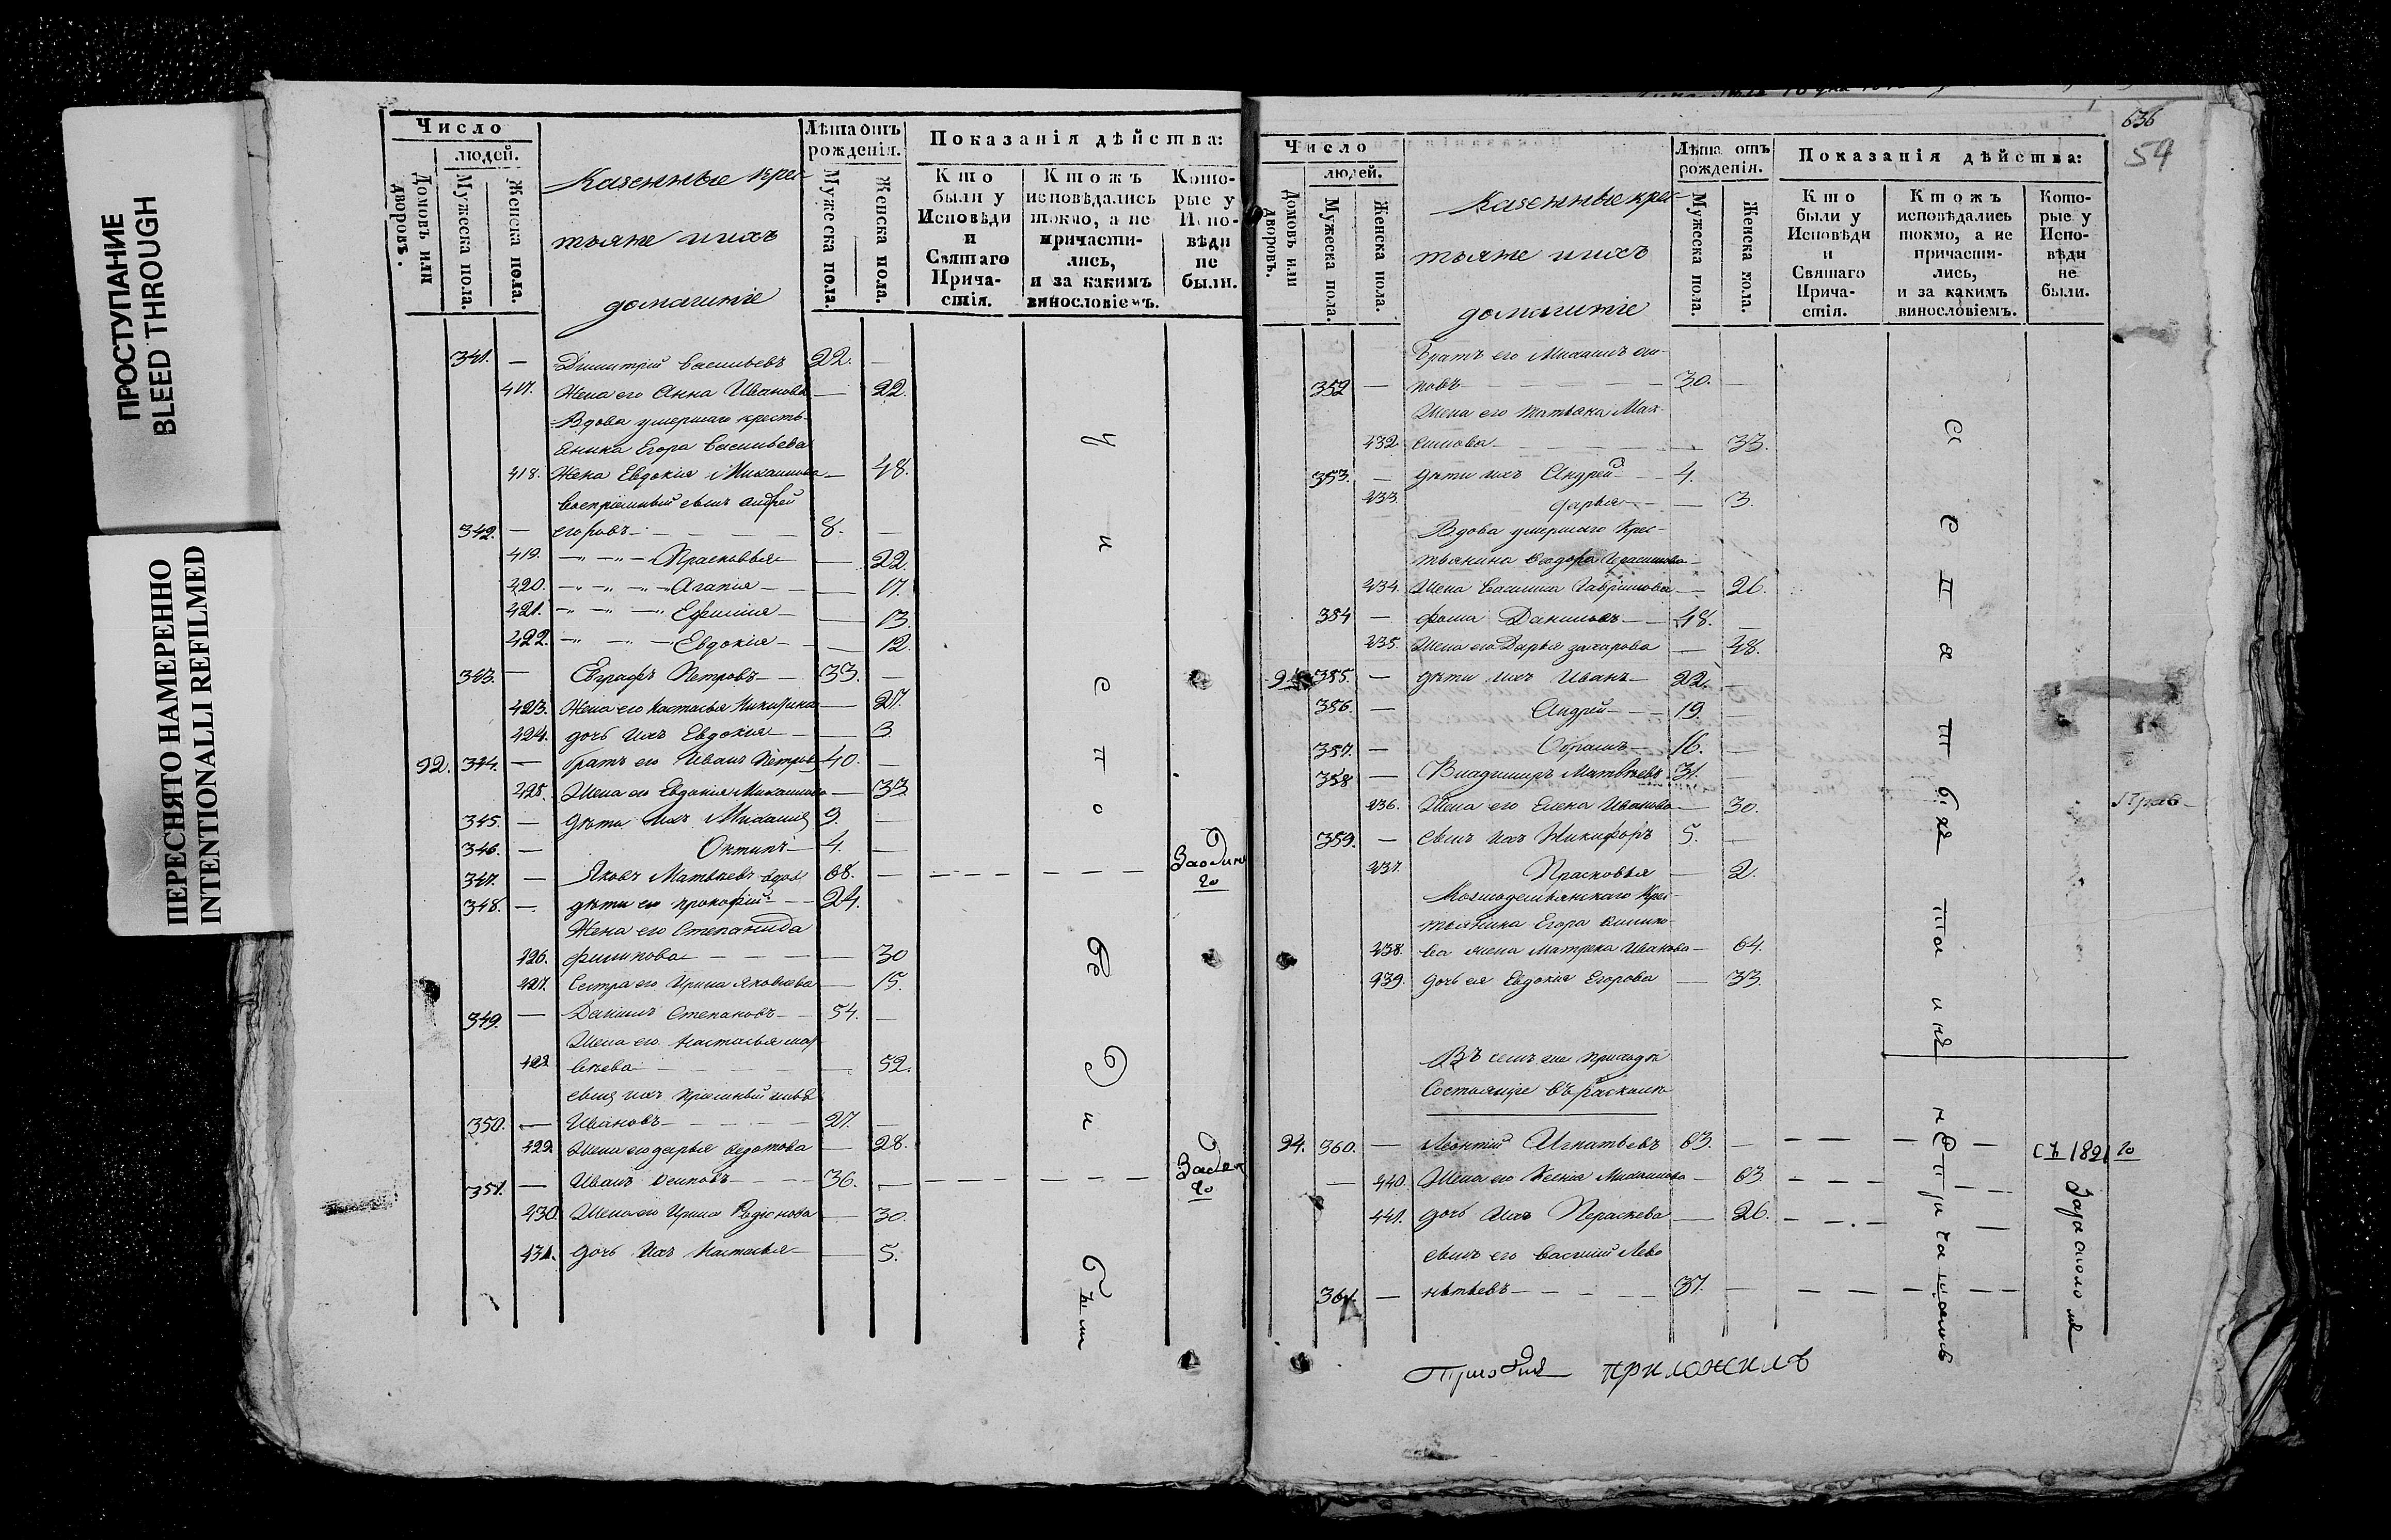 ПРОСТУПАНИЕ
BLEED THROUGH
ПЕРЕСНЯТО НАМЕРЕННО
INTENTIONALLI REFILMED
Число
людей.
Домовъ или дворовъ.
Мужеска пола.
Женска пола.
Казенные крес-
тьяне и ихъ
домашніе
Лѣта отъ рожденія.
Мужеска пола.
Женска пола.
Показанія дѣйства:
Кто были у Исповѣди и Святаго Причастія.
Ктожъ исповѣдались токмо, а не причастились, и за какимъ винословіемъ.
Которые у Исповѣди не были.
341. — Димитрій Васильевъ 22. —
417. Жена его Анна Иванова — 22.
Вдова умершаго кресть-
яника Егора Васильева
418. Жена Евдокія Михаилова — 48.
Воспріемный сынъ Андрей
342. — Егоровъ 8. —
419. Прасковья — 22.
420. Агапія — 17.
421. Ефимія — 13.
422. Евдокія — 12.
343. — Евграфъ Петровъ 33. —
423. Жена его Настасья — 27.
424. дочь ихъ Евдокія — 3
92. 344. — братъ его Иванъ Петровъ 40. —
425. Жена его Евдокія Михаилова — 33
345. — Дѣти ихъ Михаилъ 9. —
346. — 4. —
347. — Яковъ Матвѣевъ вдов 68. —
348. — дѣти его Прокофій 24.
Жена его Степанида
426. Филипова — 30
427. Сестра его Ирина Яковлева — 15.
349. — Данилъ Степановъ 54. —
Жена его Настасья Мат-
вѣева — 52.
сынъ ихъ пріемный
350. — Ивановъ 27. —
429. Жена его Дарья Федотова — 28.
351. — Иванъ Осиповъ 36. —
430. Жена его Ирина Родіонова — 30.
431. дочь ихъ Настасья — 5.
у
и
с
п
о
в
ѣ
д
и
636
54
Число
людей.
Домовъ или дворовъ.
Мужеска пола.
Женска пола.
Казенные крес-
тьяне и ихъ
домашніе
Лѣта отъ рожденія.
Мужеска пола.
Женска пола.
Показанія дѣйства:
Кто были у Исповѣди и Святаго Причастія.
Ктожъ исповѣдались токмо, а не причастились, и за какимъ винословіемъ.
Которые у Исповѣди не были.
Братъ его Михаилъ Оси-
352 — повъ 30. —
Жена его Татьяна Мак-
432 симова — 33.
353. — дѣти ихъ Андрей 4.
433. Дарья — 3.
Вдова умершаго Крес-
тьянина Ѳеодора Герасимова
434. Жена Василиса Гаврилова — 26.
354 — Фома Даниловъ 48. —
435. Жена его Дарья Захарова — 48.
355. — дѣти ихъ Иванъ 22. —
356. — Андрей 19. —
357. — 16. —
358 — Владимиръ Матвѣевъ 31. —
436. Жена его Елена Иванова — 30.
359. — сынъ ихъ Никифоръ 5. —
437. Прасковья — 2.
Козмодемьянскаго Крес-
тьянина Егора
438. ва жена Матрена Иванова — 64.
439. дочь ея Евдокія Егорова — 33.
Въ семъ же приходѣ
Состоящіе въ расколѣ
94. 360. — Леонтій Игнатьевъ 63. —
— 440. Жена его Ксенія Михаилова — 63.
441. дочь ихъ Параскева — 26.
сынъ его Василій Лево-
361. — нтьевъ 37. —
Съ 1821 го
За расколомъ
приложилъ